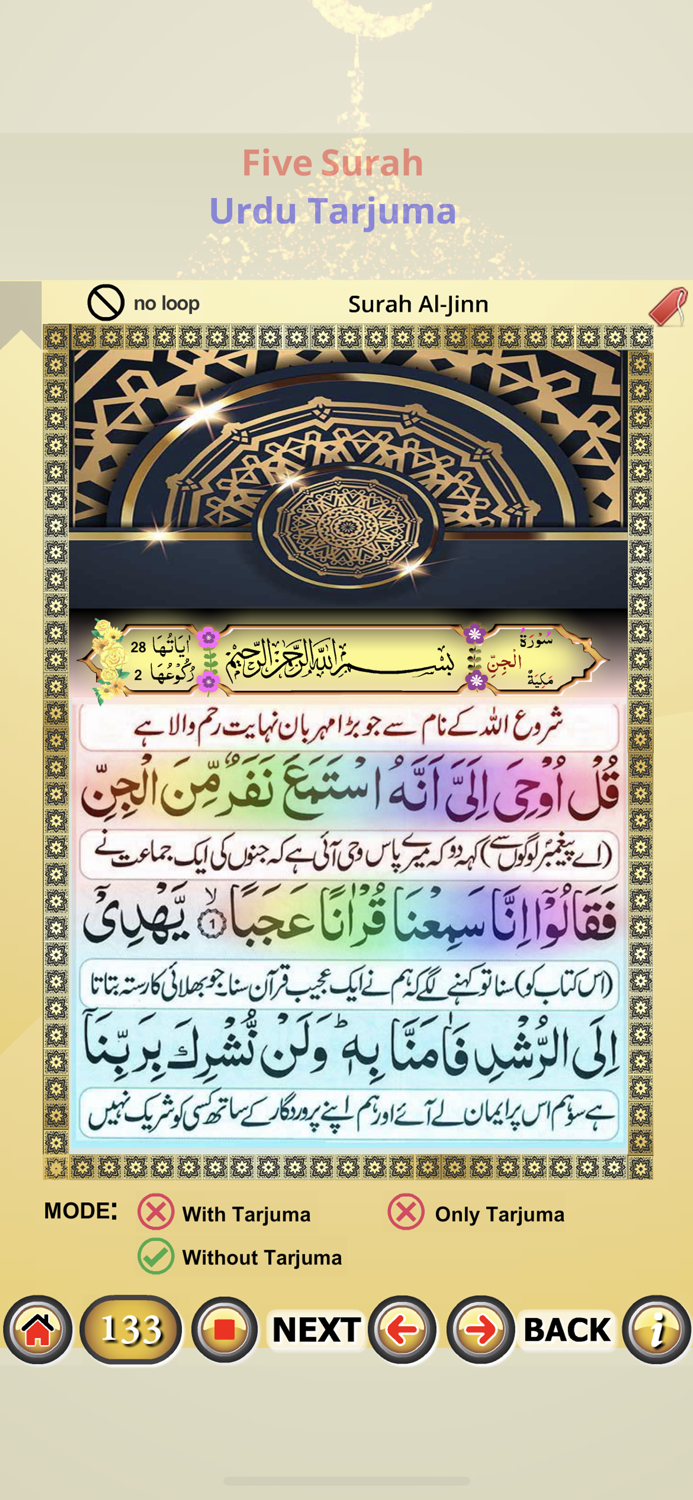 Five Surah
Urdu Tarjuma
no loop
Surah Al-Jinn
سُوْرَةُ
الْجِنِّ
مَکِیَّةٌ
بِسْمِ اللهِ الرَّحْمٰنِ الرَّحِيْمِ
اٰيَاتُهَا 28
رُكُوْعُهَا 2
شروع اللہ کے نام سے جو بڑا مہربان نہایت رحم والا ہے
قُلْ اُوْحِىَ اِلَىَّ اَنَّهُ اسْتَمَعَ نَفَرٌ مِّنَ الْجِنِّ
(اے پیغمبر لوگوں سے) کہہ دو کہ میرے پاس وحی آئی ہے کہ جنوں کی ایک جماعت نے
فَقَالُوْۤا اِنَّا سَمِعْنَا قُرْاٰنًا عَجَبًا ۙ‏ ۱ يَّهْدِىْۤ
(اس کتاب کو) سنا تو کہنے لگے کہ ہم نے ایک عجیب قرآن سنا جو بھلائی کا رستہ بتاتا
اِلَى الرُّشْدِ فَاٰمَنَّا بِهٖ‌ ؕ وَلَنْ نُّشْرِكَ بِرَبِّنَاۤ
ہے سو ہم اس پر ایمان لے آئے اور ہم اپنے پروردگار کے ساتھ کسی کو شریک نہیں
MODE: With Tarjuma Only Tarjuma
Without Tarjuma
133 NEXT BACK i